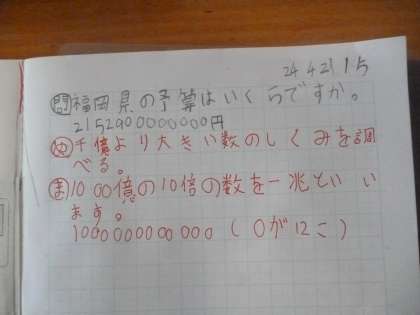 24 4 21 15
問 福岡県の予算はいくらですか。
2152900000000円
め 千億より大きい数のしくみを調
べる。
ま 1000億の10倍の数を一兆といい
ます。
1000000000000 (0が12こ)